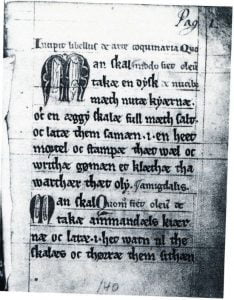 Pag. 1.
Incipit libellus de arte coquinaria Quo
Man skal fiet oleu
takæ en dysk de nucibo
mæth nutæ kyærnæ.
oc en æggy skalæ full mæth salt
oc latæ them samæn. i. en heet
mortel oc stampæ thæt wæl oc
writhæ gømæn et klæthæ tha
warthær thæt oly. Damigdalis.
Man skal Quom̄ fiet oleū de
takæ ammandæls kiær
næ oc latæ. i. het watn til the
skalæs oc thørræ them sithæn
140